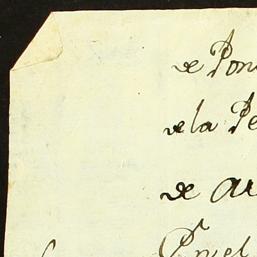 de Pon
de la Pe
de ar
Por el